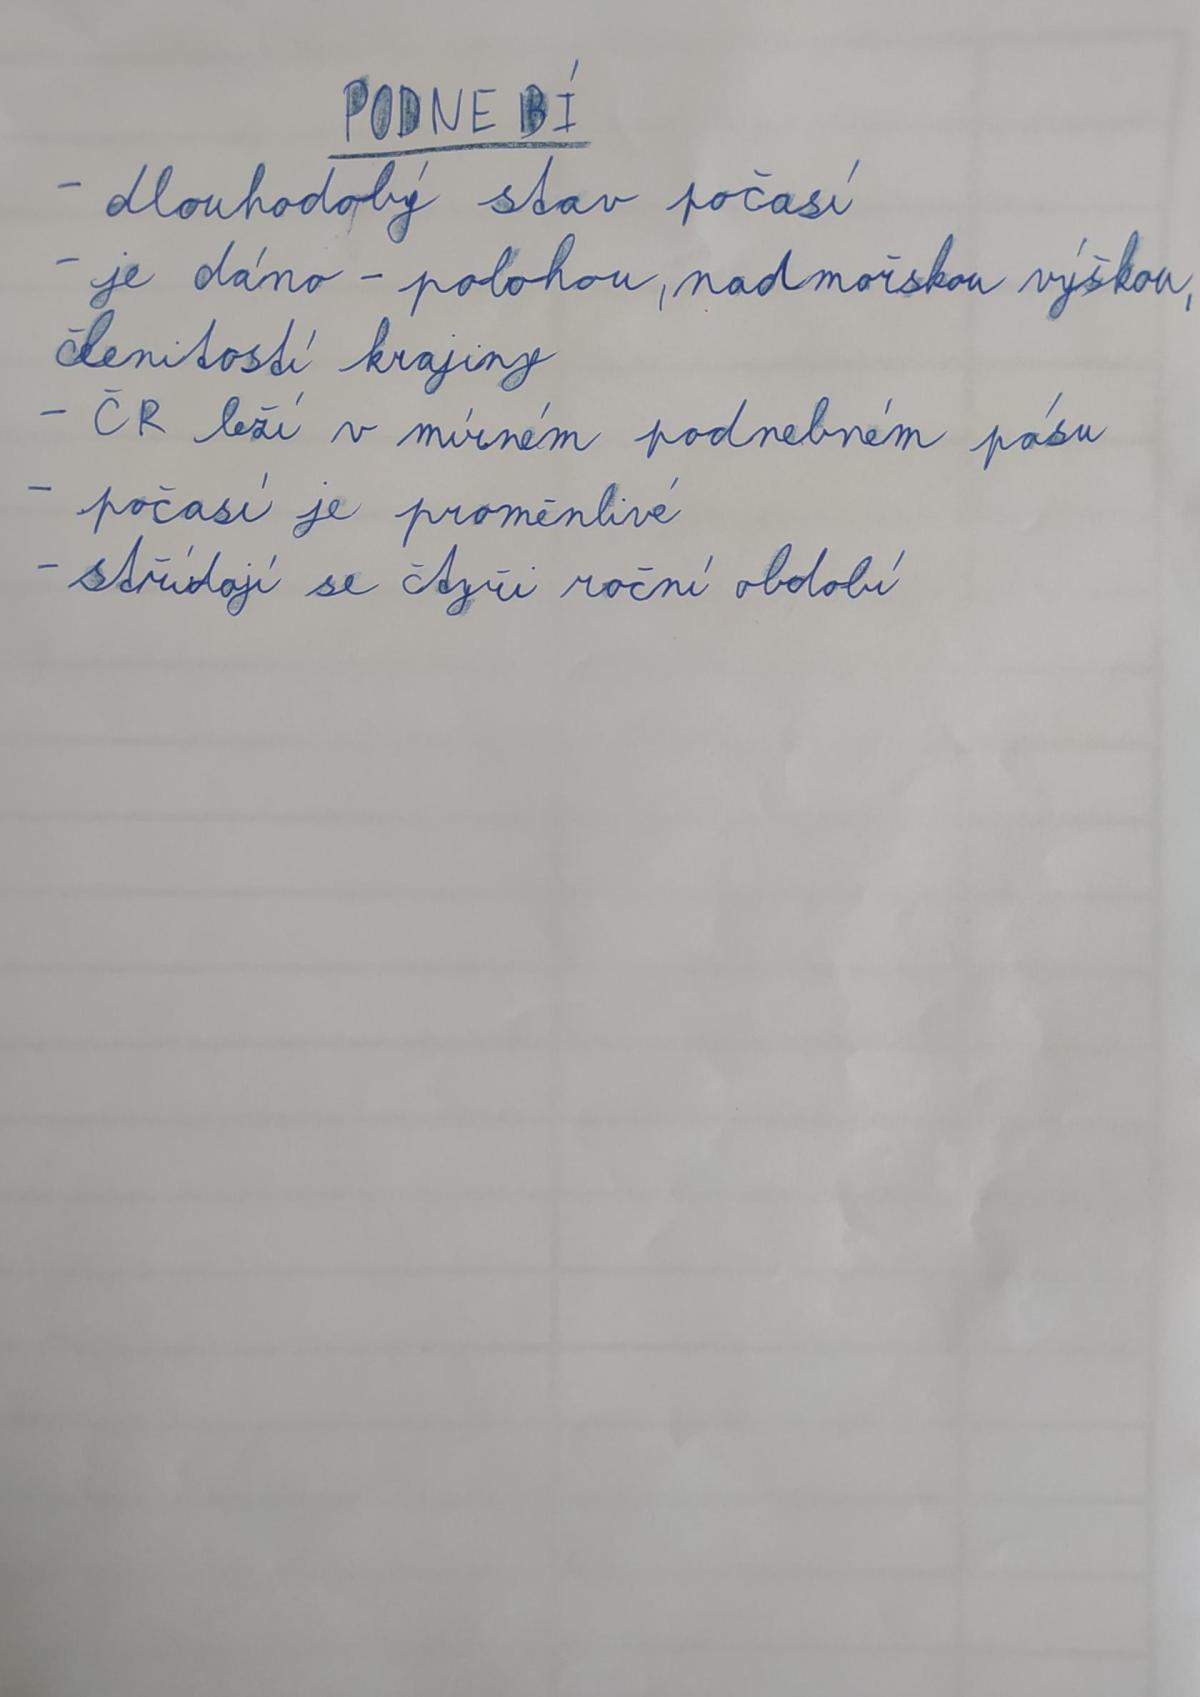 PODNEBÍ
- dlouhodobý stav počasí
- je dáno - polohou, nadmořskou výškou,
členitostí krajiny
- ČR leží v mírném podnebném pásu
- počasí je proměnlivé
- střídají se čtyři roční období